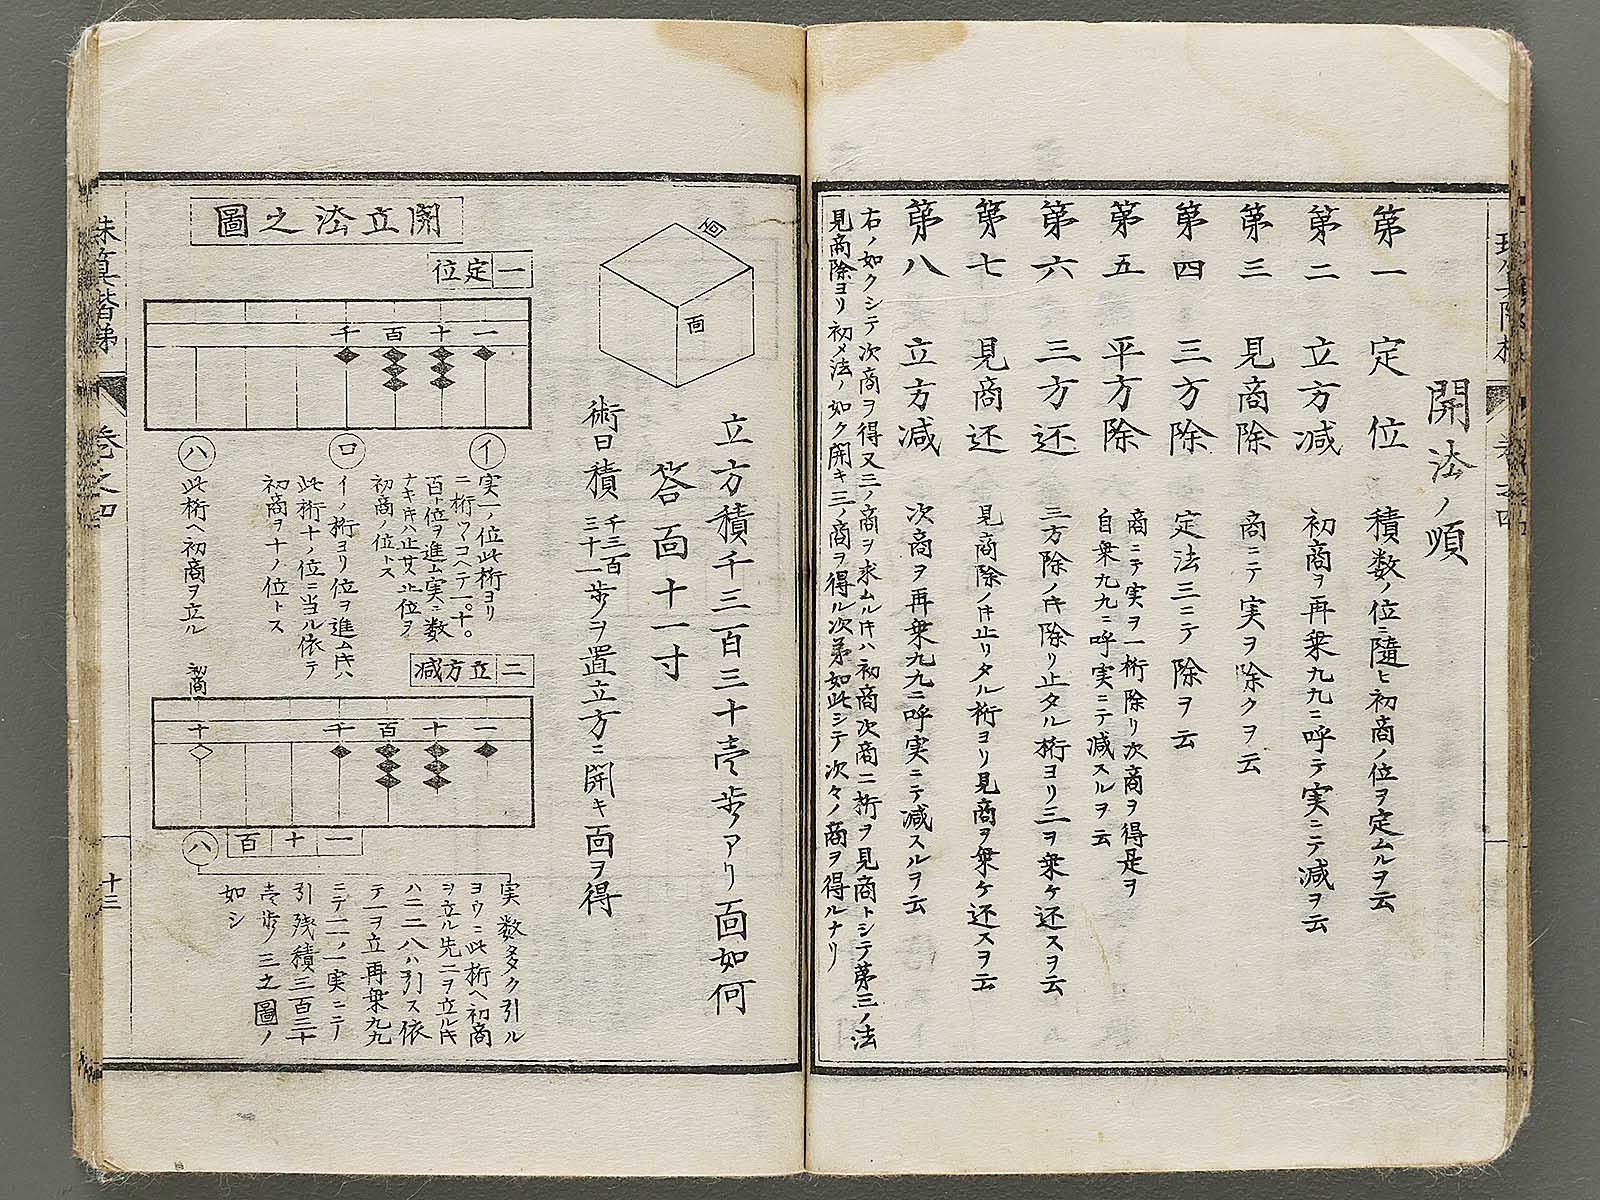 開法ノ順
第一 定位 積数ノ位ニ隨ヒ初商ノ位ヲ定ムルヲ云
第二 立方減 初商ヲ再乗九九ニ呼テ実ニテ減ヲ云
第三 見商除 商ニテ実ヲ除クヲ云
第四 三方除 定法三ニテ除ヲ云
第五 平方除 商ニテ実ヲ一桁除リ次商ヲ得是ヲ
自乗九九ニ呼実ニテ減スルヲ云
第六 三方还 三方除ノ時除リ止タル桁ヨリ三ヲ乗ケ还スヲ云
第七 見商还 見商除ノ時止リタル桁ヨリ見商ヲ乗ケ还スヲ云
第八 立方減 次商ヲ再乗九九ニ呼実ニテ減スルヲ云
右ノ如クシテ次商ヲ得又三ノ商ヲ求ムル時ハ初商次商二桁ヲ見商トシテ第三ノ法
見商除ヨリ初メ法ノ如ク開キ三ノ商ヲ得ル次第如此シテ次々ノ商ヲ得ルナリ
面
面
立方積千三百三十壱歩アリ面如何
答面十一寸
術曰積千三百三十一歩ヲ置立方ニ開キ面ヲ得
開立法之圖
一 定位
一 十 百 千
イ
実一ノ位此桁ヨリ
二桁ツヽコヘテ一。十。
百ト位ヲ進ム実ニ数
ナキ時ハ止其止位ヲ
初商ノ位トス
ロ
イノ桁ヨリ位ヲ進ム時ハ
此桁十ノ位ニ当ル依テ
初商ヲ十ノ位トス
ハ
此桁ヘ初商ヲ立ル
二 立方減
初商
一 十 百 千 十
一 十 百
ハ
実数多ク引ル
ヨウニ此桁ヘ初商
ヲ立ル先二ヲ立ル時
ハ二二八ハ引ス依
テ一ヲ立再乗九九
ニテ一一ノ一実ニテ
引残積三百三十
壱歩三之圖ノ
如シ
珠算階梯
巻之四
十三